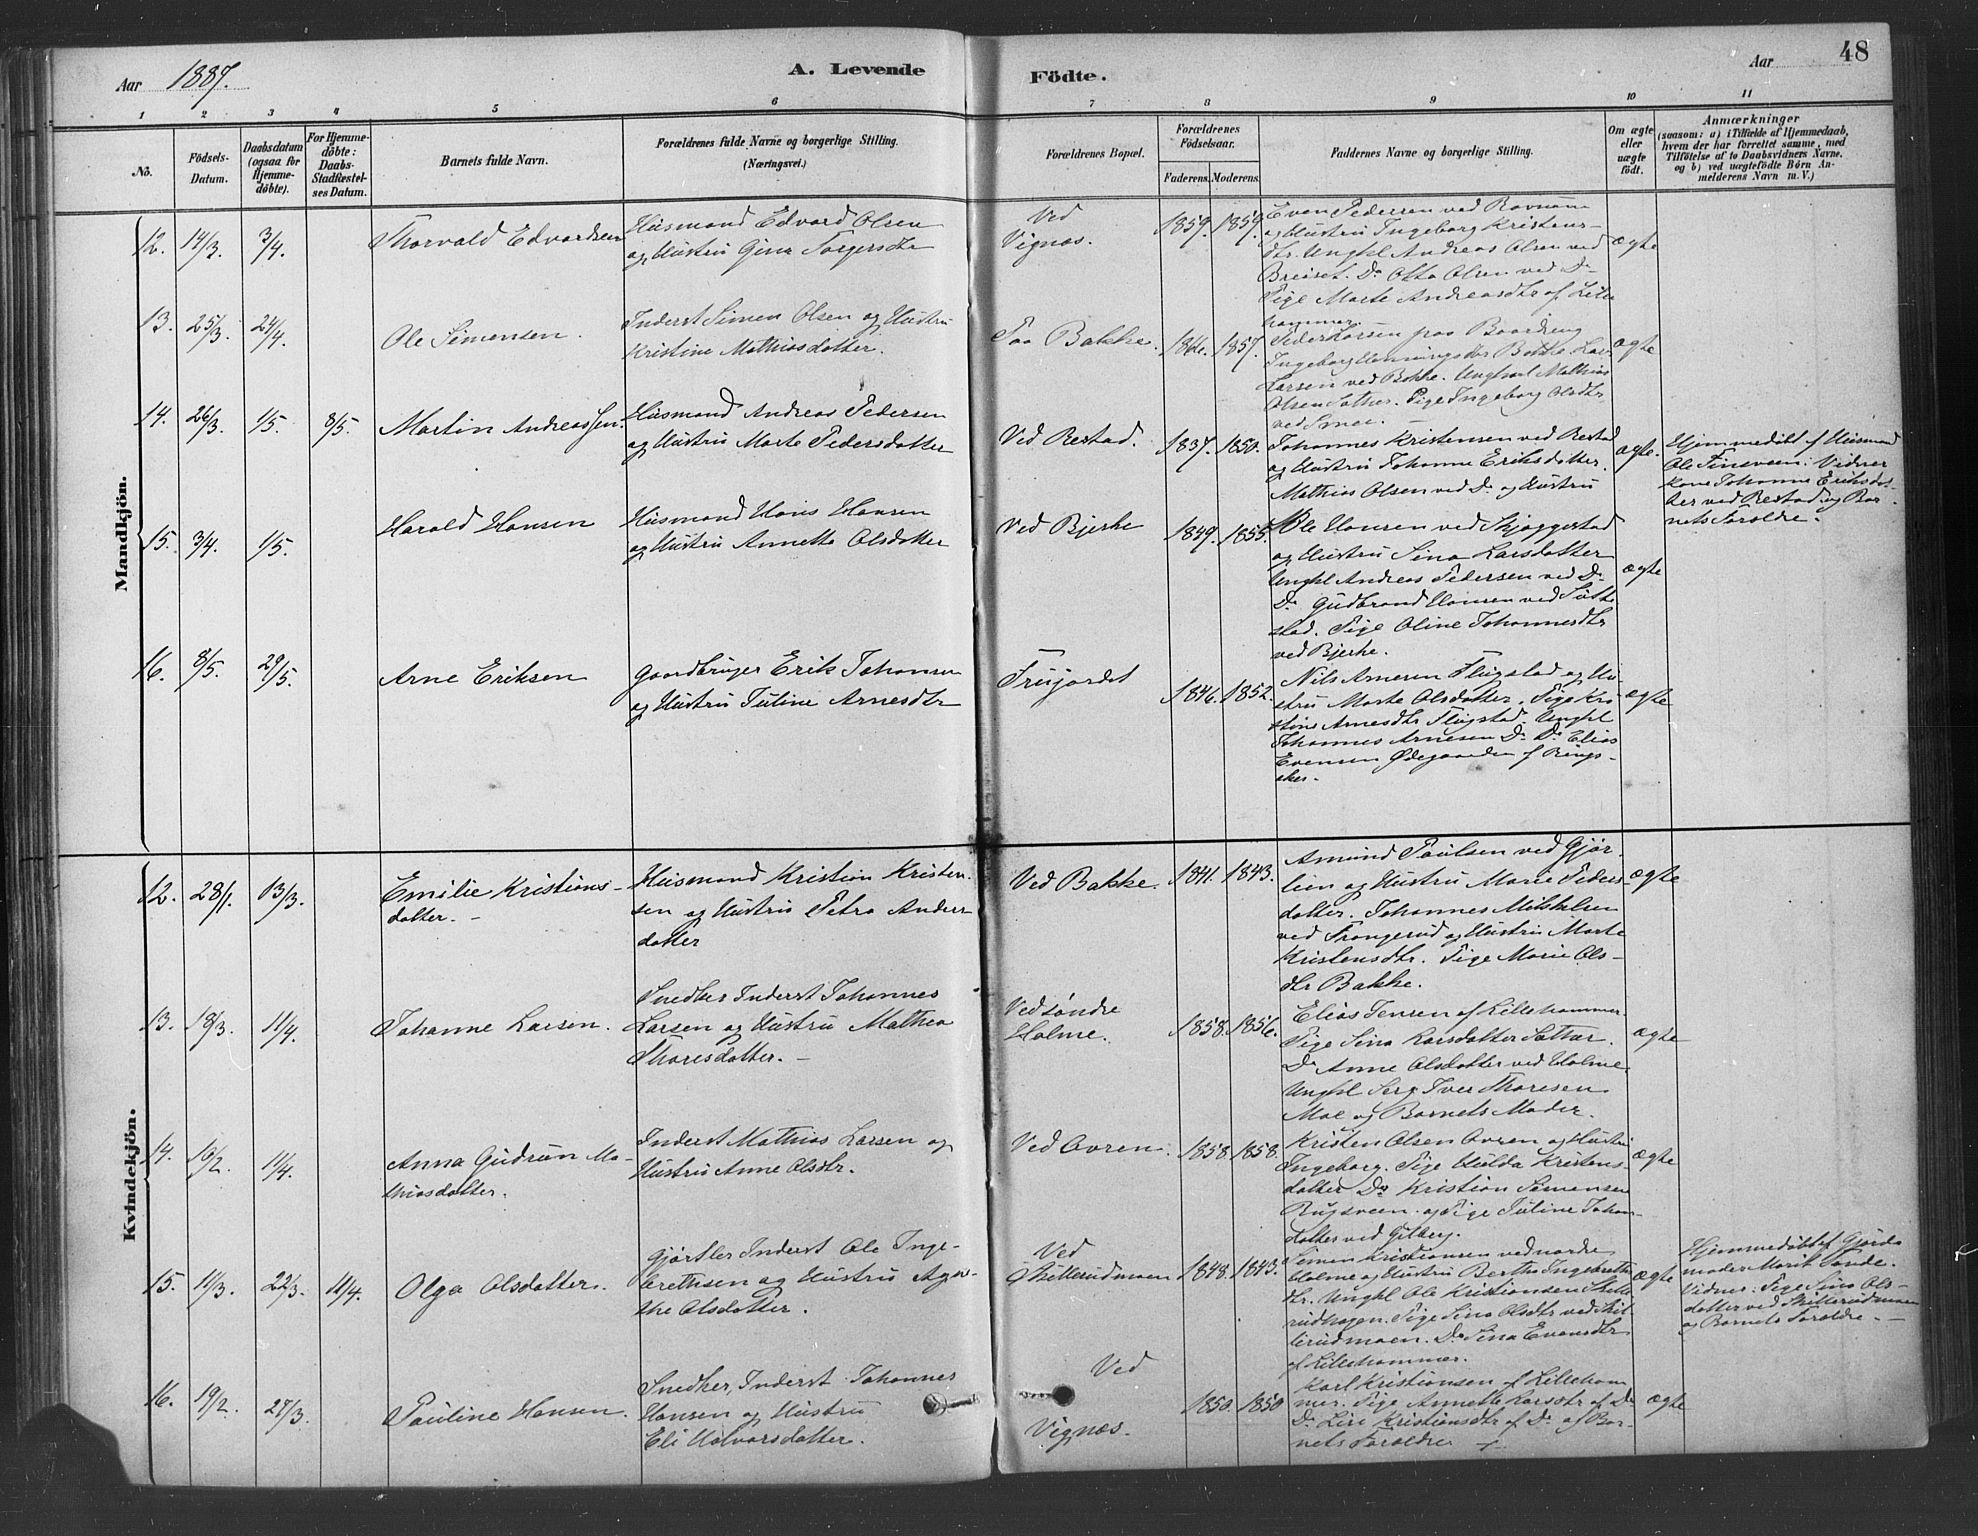 Aar 1887.
A. Levende
Födte.
Aar
48
1 2 3 4 5 6 7 8 9 10 11
No.
Födsels-
Datum.
Daabsdatum
(ogsaa for
Hjemme-
döbte).
For Hjemme-
döbte:
Daabs-
Stadfæstel-
ses Datum.
Barnets fulde Navn.
Forældrenes fulde Navne og borgerlige Stilling.
(Næringsvei.)
Forældrenes Bopæl.
Forældrenes
Födselsaar.
Faderens. Moderens.
Faddernes Navne og borgerlige Stilling.
Om ægte
eller
uægte
født.
Anmærkninger
(saasom: a) i Tilfælde af Hjemmedaab,
hvem der har forrettet samme, med
Tilföielse af to Daabsvidners Navne.
og b) ved uægtefödte Börn An-
melderens Navn m. V.)
Mandkjön.
12. 14/3. 3/4.
Thorvald Edvardsen
Husmand Edvard Olsen
og Hustru Gina
Ved
Vignæs.
1859. 1859.
Even Pedersen ved
og Hustru Ingeborg Kristens-
dtr. Unghl Andreas Olsen ved
Breiset. Do Otto Olsen ved Do
Pige Marte Andreasdtr af Lille
hammer.
ægte
13. 25/3. 24/4.
Ole Simensen.
Inderst Simen Olsen og Hustru
Kristine Mathiasdatter.
Paa Bakke.
1857.
Peder Larsen paa
Ingeborg Henningsdtr Bakke. Lars
Larsen ved Bakke. Ungkarl Mathias
Olsen Sother. Pige Ingeborg Olsdtr
ved
ægte
14. 26/3. 1/5. 8/5.
Martin Andreassen.
Husmand Andreas Pedersen
og Hustru Marte Pedersdatter
Ved Restad.
1837. 1850.
Johannes Kristensen ved Restad
og Hustru Johanne Eriksdatter.
Mathias Olsen ved Do og Hustru
ægte.
Hjemmedøbt af Husmand
Ole Finsveen. Vidner
Kone Johanne Eriksdat-
ter ved Restad og Bar-
nets Foreldre.
15. 3/4. 1/5.
Harald Hansen
Husmand Hans Hansen
og Hustru Annette Olsdatter
Ved Bjerke
1849. 1855.
Ole Hansen ved Skjaggestad
og Hustru Sina Larsdatter
Unghl Andreas Pedersen ved Do
Do Gudbrand Hansen ved Sutte
stad. Pige Oline Johannesdtr
ved Bjerke.
ægte
16. 8/5. 29/5.
Arne Eriksen
Gaardbruger Erik Johansen
og Hustru Juline Arnesdtr
Frujordet
1846. 1852.
Nils Arnesen Flugstad og Hu-
stru Marte Olsdatter. Pige Kri
stine Arnesdtr Flugstad. Unghl
Johannes Arnesen Do. Do Elias
Evensen Ødegaarden af Rings-
aker.
ægte
Kvindekjön.
12. 28/1. 13/3.
Emilie Kristians-
datter. -
Husmand Kristian Kristen-
sen og Hustru Petra Anders-
datter
Ved Bakke.
1841. 1843.
Amund Paulsen ved Gjør-
lien og Hustru Marie Peders-
datter. Johannes Mikkelsen
ved Prangerud og Hustru Marte
Kristensdtr. Pige Marie Ols-
dtr Bakke.
ægte
13. 18/3. 11/4.
Johanne Larsen.
Snedker Inderst Johannes
Larsen og Hustru Mathea
Thoresdatter. -
Ved søndre
Holme.
1858. 1856.
Elias Jensen af Lillehammer.
Pige Sina Larsdatter Sother.
Do Anne Olsdatter ved Holme
Unghl Serg Iver Thoresen
Moe og Barnets Moder.
ægte
14. 16/2. 11/4.
Anna Gudrun Ma-
thiasdatter.
Inderst Mathias Larsen og
Hustru Anne Olsdtr.
Ved Ovren.
1858. 1858.
Kristen Olsen Ovren og Hustru
Ingeborg. Pige Hulda Kristens-
datter Do Kristian Simensen
Rugsveen. og Pige Juline Johan-
datter ved Gilberg.
ægte
15. 11/3. 22/3. 11/4.
Olga Olsdatter.
Gjørtler Inderst Ole Inge-
bretsen og Hustru Agne-
the Olsdatter.
Ved
Skillerudmoen
1848. 1843.
Simen Kristiansen ved nordre
Holme og Hustru Berthe Ingebrets
dtr. Unghl Ole Kristiansen Skille
rudhagen. Pige Sina Olsdtr ved Skil-
lerudmoen. Do Sina Evensdtr
af Lillehammer.
ægte
Hjemmedøbt af Gjorde
moder Marit Tande.
Vidner. Pige Sina Ols-
datter ved Skillerudmoen
og Barnets Foreldre. -
16. 19/2. 27/3.
Pauline Hansen.
Snedker, Inderst Johannes
Hansen og Hustru
Eli Halvorsdatter.
Ved
Vignæs.
1850. 1850
Karl Kristiansen af Lilleham
mer. Pige Annette Larsdtr af Do
Do Lise Kristiansdtr af Do og Bar-
nets Foreldre
ægte